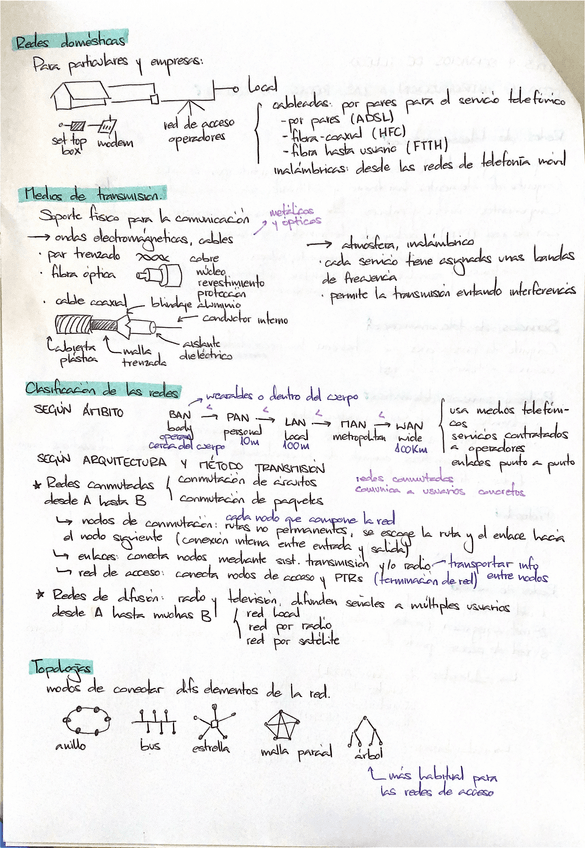 Redes domésticas
Para particulares y empresas:
Local
set top box
modem
red de acceso operadores
cableadas: por pares para el servicio telefónico
- por pares (ADSL)
- fibra-coaxial (HFC)
- fibra hasta usuario (FTTH)
inalámbricas: desde las redes de telefonía móvil
Medios de transmisión.
Soporte físico para la comunicación
metálicos y ópticos
→ ondas electromagnéticas, cables
· par trenzado
cobre
· fibra óptica
núcleo
revestimiento
protección
· cable coaxial
blindaje aluminio
conductor interno
cubierta plástica
malla trenzada
aislante dieléctrico
→ atmósfera, inalámbrico
· cada servicio tiene asignadas unas bandas
de frecuencia
· permite la transmisión evitando interferencias
Clasificación de las redes
wearables o dentro del cuerpo
SEGÚN ÁMBITO
BAN < → PAN < → LAN < → MAN < → WAN
body personal local metropolitan wide
cerca del cuerpo 10m 100m 100Km
usa medios telefóni-
cos
servicios contratados
a operadores
enlaces punto a punto
SEGÚN ARQUITECTURA Y MÉTODO TRANSMISIÓN
* Redes conmutadas
desde A hasta B
conmutación de circuitos
conmutación de paquetes
redes conmutadas
comunica a usuarios concretos
cada nodo que compone la red
↳ nodos de conmutación: rutas no permanentes, se escoge la ruta y el enlace hacia
el nodo siguiente (conexión interna entre entrada y salida)
↳ enlaces: conecta nodos mediante sist. transmisión y/o radio - transportar info entre nodos
↳ red de acceso: conecta nodos de acceso y PTRs (terminación de red)
* Redes de difusión: radio y televisión, difunden señales a múltiples usuarios
desde A hasta muchas B
red local
red por radio
red por satélite
Topologías
modos de conectar difs elementos de la red.
anillo
bus
estrella
malla parcial
árbol
más habitual para
las redes de acceso